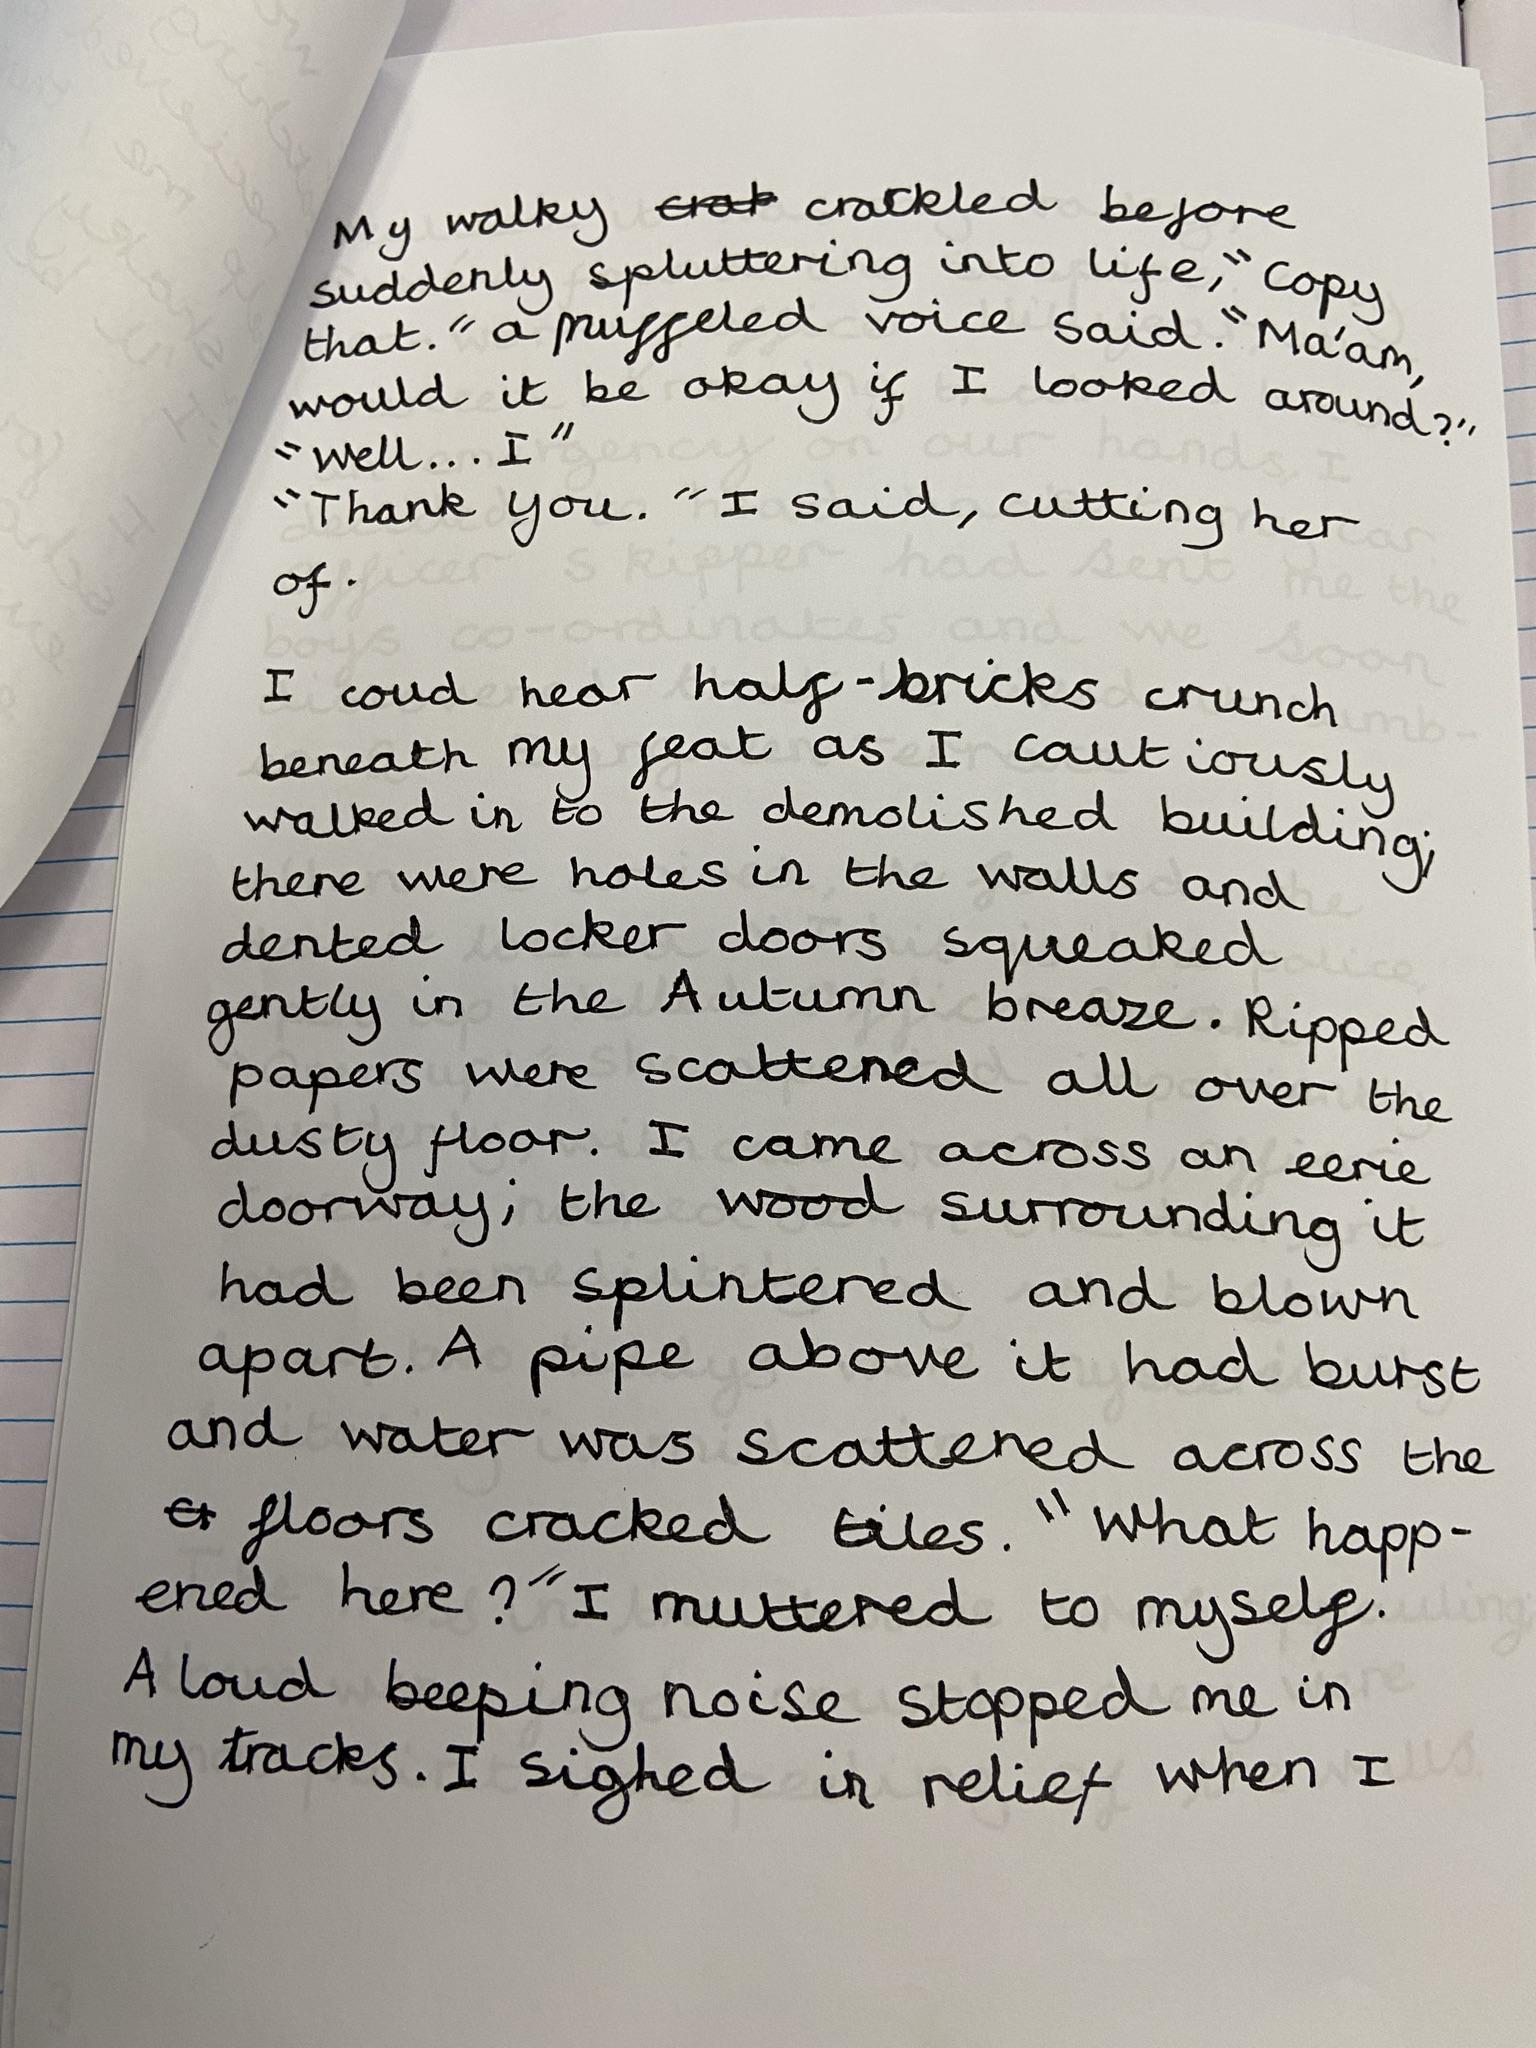 My walky crackled before
suddenly spluttering into life, "Copy
that." a muffeled voice said. "Ma'am,
would it be okay if I looked around?"
"Well... I"
"Thank you. "I said, cutting her
of.
I coud hear half-bricks crunch
beneath my feat as I cautiously
walked in to the demolished building;
there were holes in the walls and
dented locker doors squeaked
gently in the Autumn breaze. Ripped
papers were scattered all over the
dusty floor. I came across an eerie
doorway; the wood surrounding it
had been splintered and blown
apart. A pipe above it had burst
and water was scattered across the
floors cracked tiles. "What happ-
ened here?" I muttered to myself.
A loud beeping noise stopped me in
my tracks. I sighed in relief when I